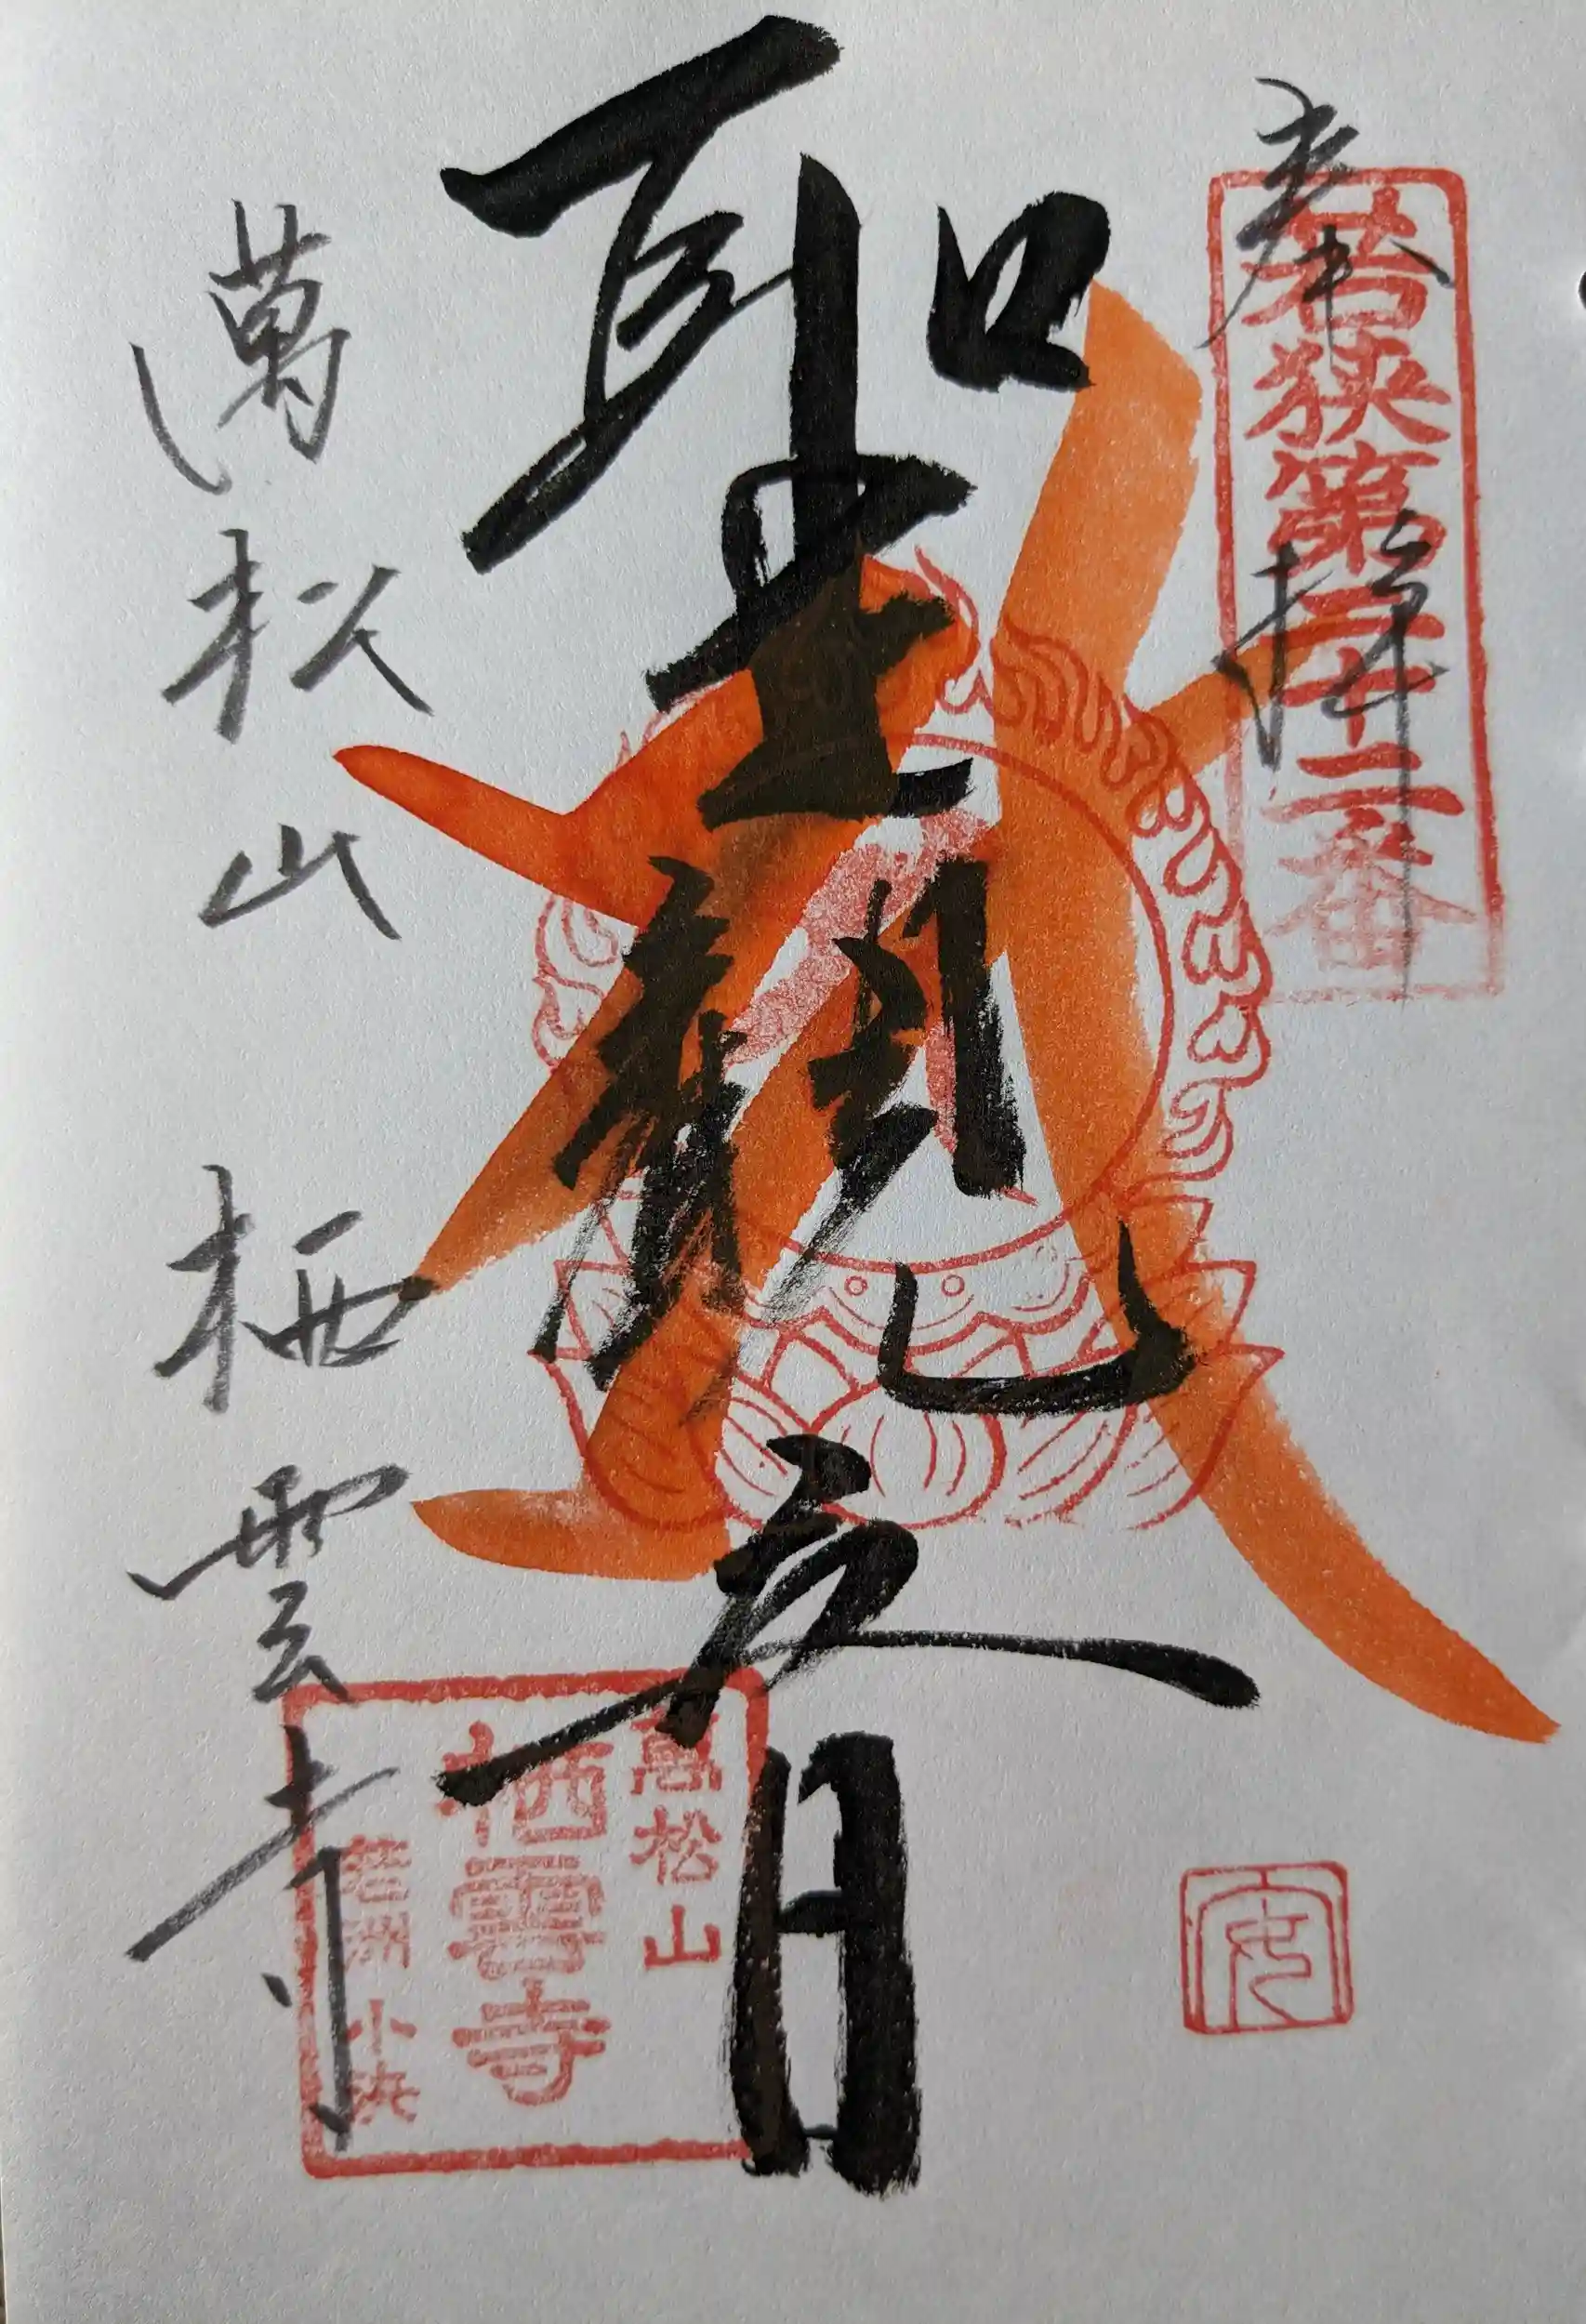 奉拝
若狭第二十二番
聖観音
萬松山 栖雲寺
萬松山
栖雲寺
若州 小浜